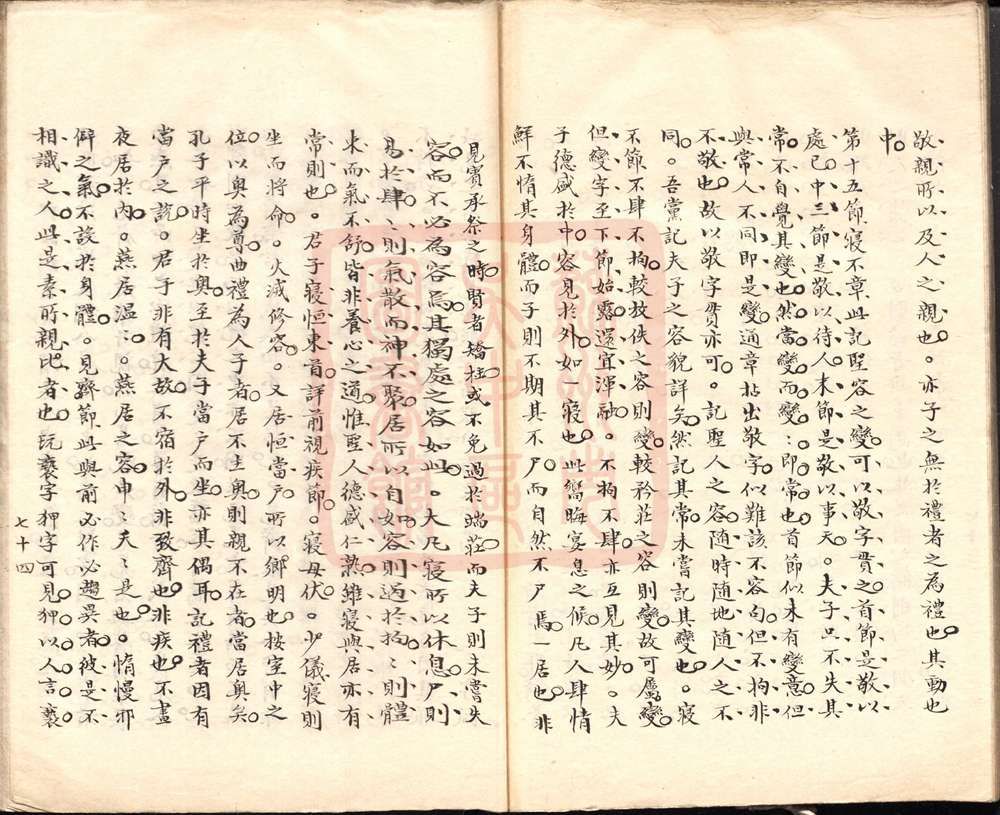 敬親所以及人之親也。亦子之無於禮者之為禮也其動也
中。
第十五節寢不章此記聖容之變可以敬字貫之首節是敬以
處己中三節是敬以待人末節是敬以事天。夫子只不失其
常不自覺其變也然當變而變〻即常也首節似未有變意但
與常人不同即是變通章拈出敬字似難該不容句但不拘非
不敬也故以敬字貫亦可。記聖人之容隨時隨地隨人之不
同。吾黨記夫子之容貌詳矣然記其常未嘗記其變也。寢
不節不肆不拘較放佚之容則變較矜莊之容則變故可屬變
但變字至下節始露還宜渾融。不拘不肆亦互見其妙。夫
子德盛於中容見於外如一寢也此嚮晦宴息之候凡人肆情
鮮不惰其身體而子則不期其不尸而自然不尸焉一居也非
見賓承祭之時賢者矯拄或不免過於端莊而夫子則未嘗失
容而不必為容焉其獨處之容如此。大凡寢所以休息尸則
易於肆〻則氣散而神不聚居所以自如容則過於拘〻則體
束而氣不舒皆非養心之道惟聖人德盛仁熟雖寢與居亦有
常則也。君子寢恒東首詳前視疾節。寢毋伏。少儀寢則
坐而將命。火滅修容。又居恒當戶所以鄉明也按室中之
位以奧為尊曲禮為人子者居不主奧則親不在者當居奧矣
孔子平時坐於奧至於夫子當戶而坐亦其偶耳記禮者因有
當戶之說。君子非有大故不宿於外非致齊也非疾也不晝
夜居於內。燕居溫〻。燕居之容申〻夭〻是也。惰慢邪
僻之氣不設於身體。見齊節此與前必作必趨異者彼是不
相識之人此是素所親比者也玩褻字狎字可見狎以人言褻
七十四